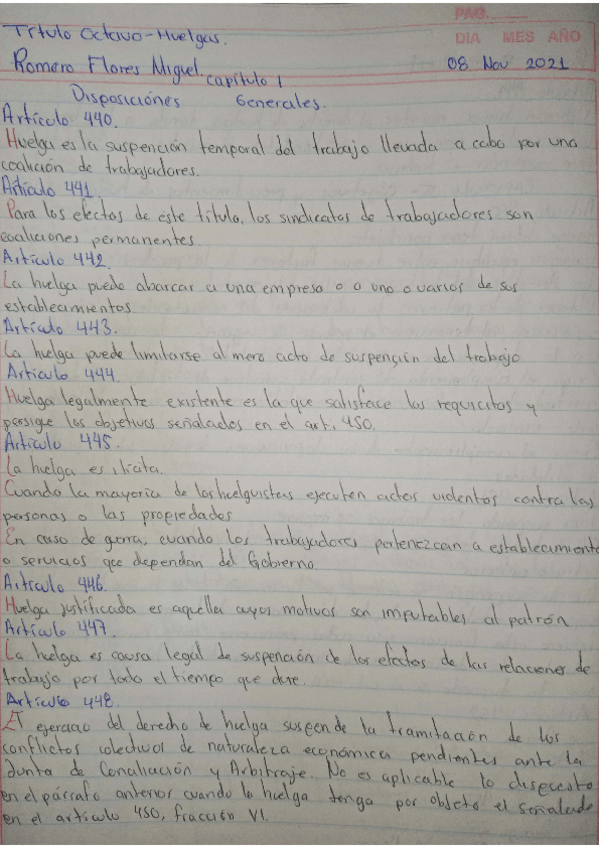 PAG.
Título Octavo-Huelgas.
DIA MES AÑO
Romero Flores Miguel.
08 Nov 2021
capítulo 1
Disposiciónes Generales.
Artículo 440.
Huelga es la suspención temporal del trabajo llevada a cabo por una
coalición de trabajadores.
Artículo 441.
Para los efectos de este título, los sindicatos de trabajadores son
coaliciones permanentes.
Artículo 442.
La huelga puede abarcar a una empresa o a uno o varios de sus
establecimientos.
Artículo 443.
La huelga puede limitarse al mero acto de suspención del trabajo
Artículo 444.
Huelga legalmente existente es la que satisface los requicitos y
persigue los objetivos señalados en el art. 450.
Artículo 445.
La huelga es ilícita.
Cuando la mayoria de los huelguistas ejecuten actos violentos contra las
personas o las propiedades
En caso de gerra, cuando los trabajadores pertenezcan a establecimiento
o servicios que dependan del Gobierno
Artículo 446.
Huelga justificada es aquella cuyos motivos son imputables al patrón
Artículo 447.
La huelga es causa legal de suspención de los efectos de las relaciones de
trabajo por todo el tiempo que dure.
Artículo 448.
El ejercicio del derecho de huelga suspende la tramitación de los
conflictos colectivos de naturaleza económica pendientes ante la
Junta de Conciliación y Arbitraje. No es aplicable lo
en el párrafo anterior cuando la huelga tenga por objeto el señalado
en el artículo 450, fracción VI.